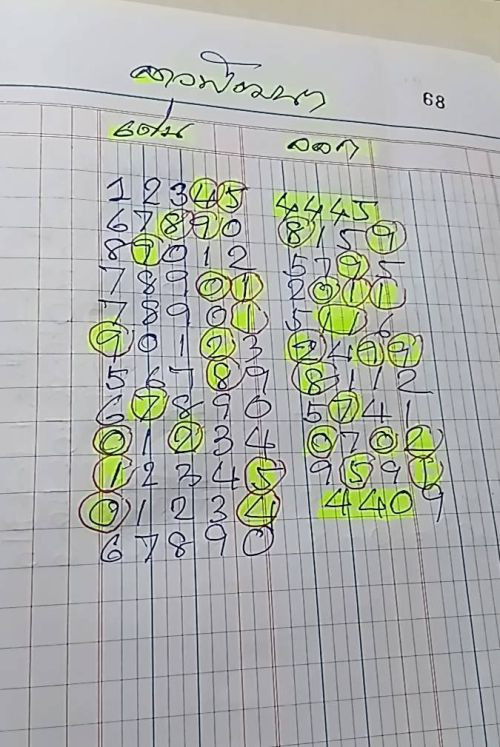 ลาวพัฒนา
68
เด่น ออก
1 2 3 4 5 4 4 4 5
6 7 8 9 0 8 1 5 9
8 9 0 1 2 5 7 9 5
7 8 9 0 1 2 0 1 1
7 8 9 0 1 5 1 6
9 0 1 2 3 2 4 9 9
5 6 7 8 9 8 1 1 2
6 7 8 9 0 5 7 4 1
0 1 2 3 4 0 7 0 2
1 2 3 4 5 9 5 9 1
0 1 2 3 4 4 4 0 9
6 7 8 9 0